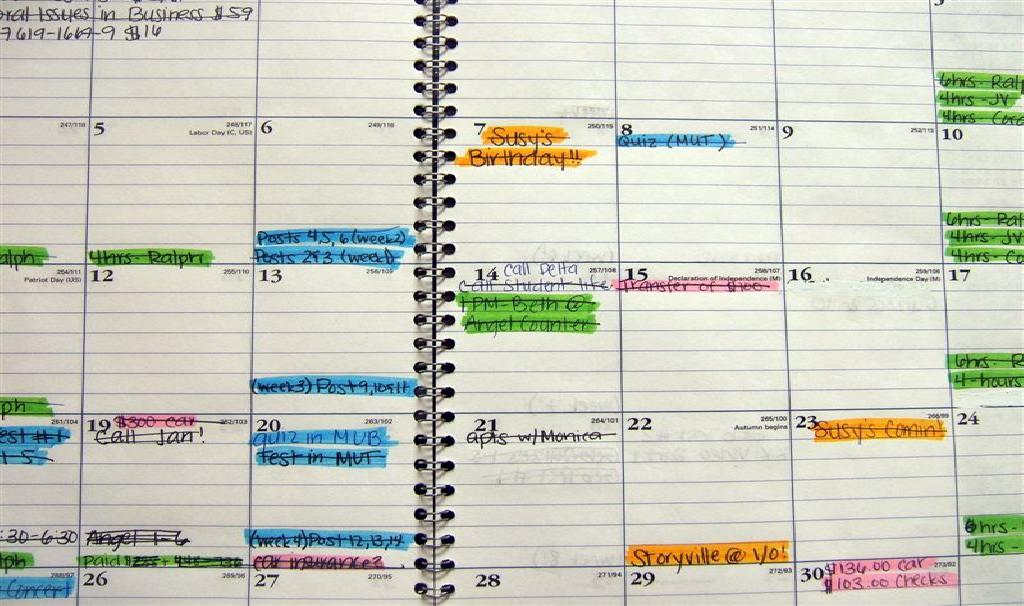 oral Issues in Business $59
7619-1669-9 $16
6hrs-Ral
4hrs-JV
4hrs-Coro
247/118
5
248/117
Labor Day (C, US)
6
249/116
7
250/115
Susy's
Birthday!!
8
251/114
Quiz (MUT)
9
252/113
10
alph
4hrs-Ralph
Posts 4,5,6 (week2)
Posts 2&3 (week1)
6hrs-Ral
4hrs-JV
4hrs-Co
254/111
Patriot Day (US)
12
255/110
13
256/109
14
257/108
call Delta
call student life
1PM-Beth @
Angel Counter
15
258/107
Declaration of Independence (M)
Transfer of $100
16
259/106
Independence Day (M)
17
ph
(week3) Post 9,10&11
6hrs-R
4-hours
261/104
est #1
1-5
19
262/103
$300 car
Call Jan!
20
263/102
quiz in MUB
Test in MUT
21
264/101
apts w/Monica
22
265/100
Autumn begins
23
266/99
Susy's Comin!
24
:30-6:30
Angel 1-6
(week4) Post 12,13,14
lph
Paid
car insurance?
Storyville @ 1/0!
6hrs-
4hrs-
268/97
Concert
26
269/96
27
270/95
28
271/94
29
272/93
30
273/92
$136.00 car
$103.00 checks